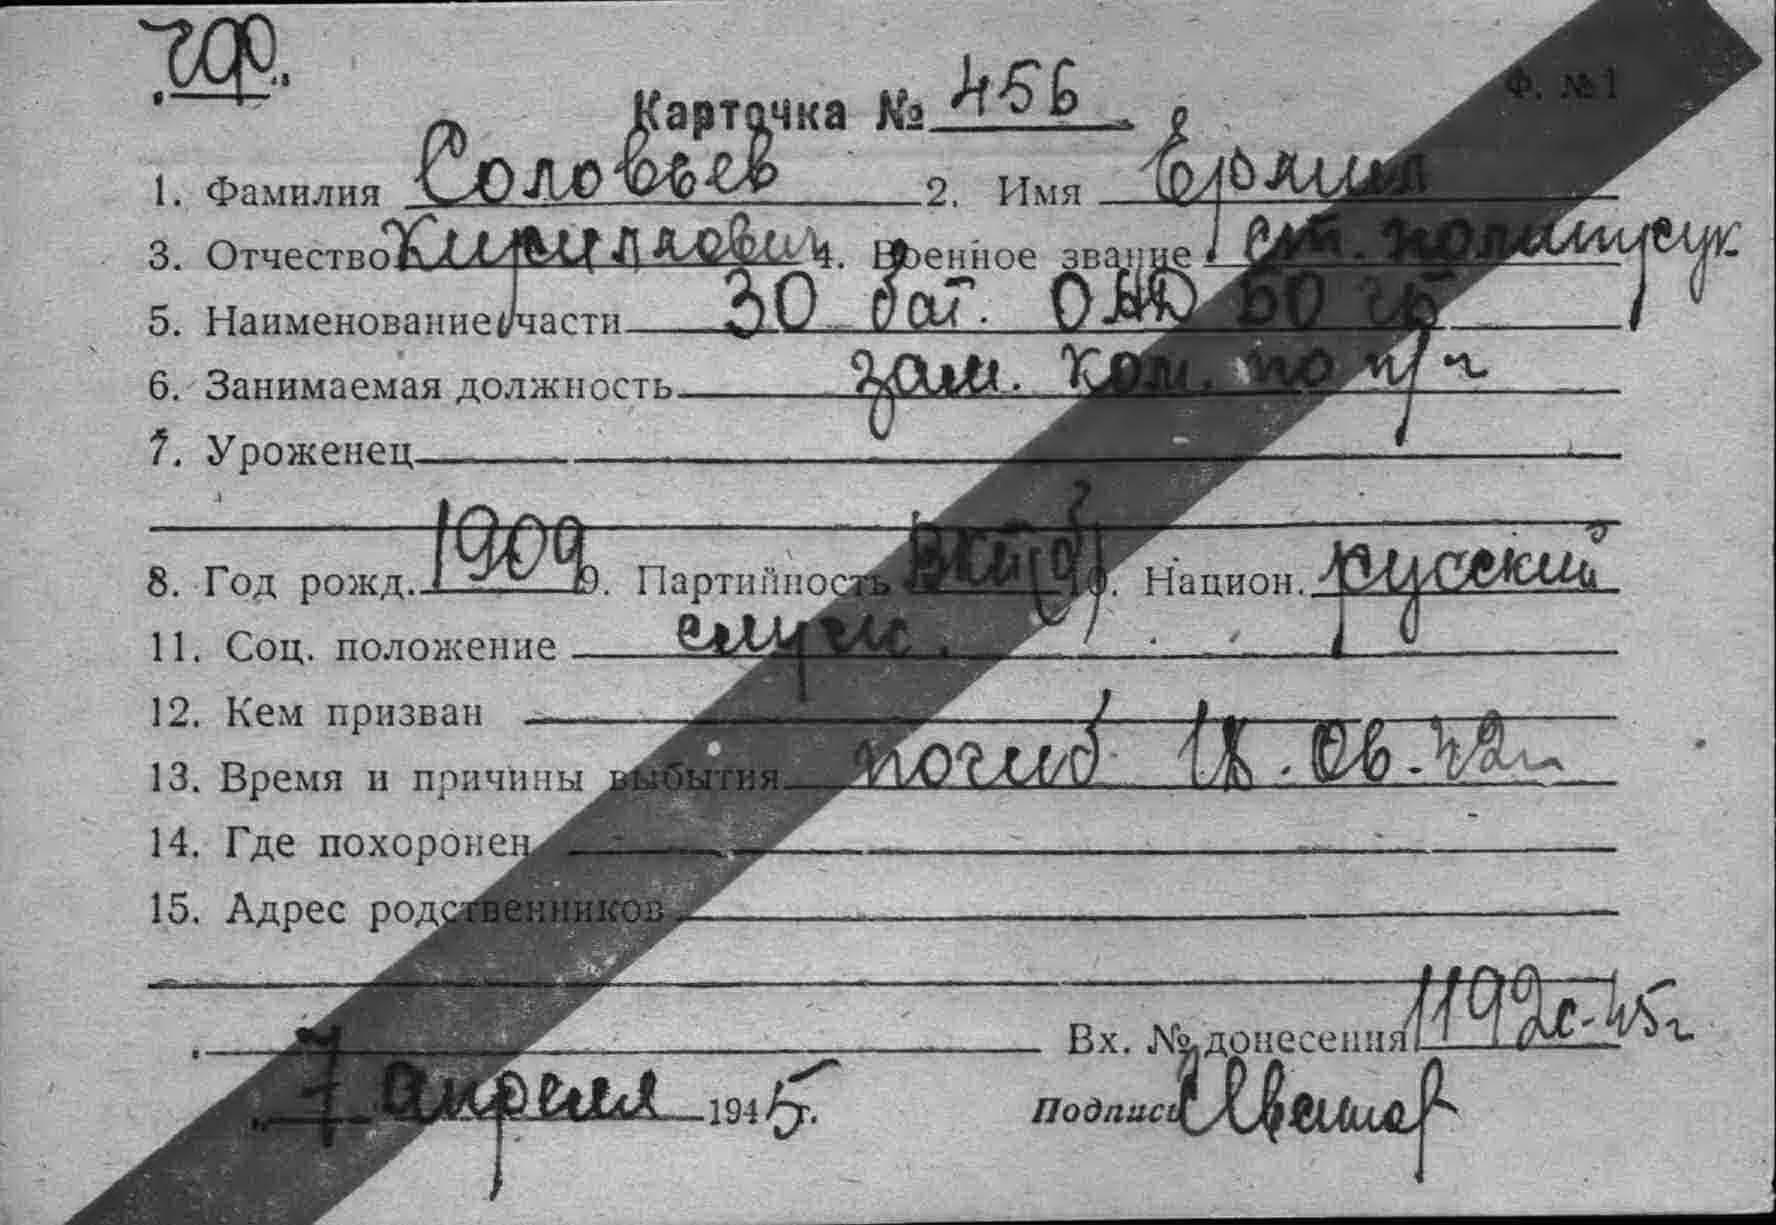 ЧФ
Карточка № 456 Ф. №1
1. Фамилия Соловьев 2. Имя Ермил
3. Отчество Кириллович 4. Военное звание ст. политрук
5. Наименование части 30 бат. ОАД БО ГБ
6. Занимаемая должность зам. ком. по п/ч
7. Уроженец
8. Год рожд. 1909 9. Партийность ВКП(б) 10. Национ. русский
11. Соц. положение служ.
12. Кем призван
13. Время и причины выбытия погиб 18.06.42г
14. Где похоронен
15. Адрес родственников
Вх. № донесения 1192с-45г
"7" апреля 1945г. Подпись